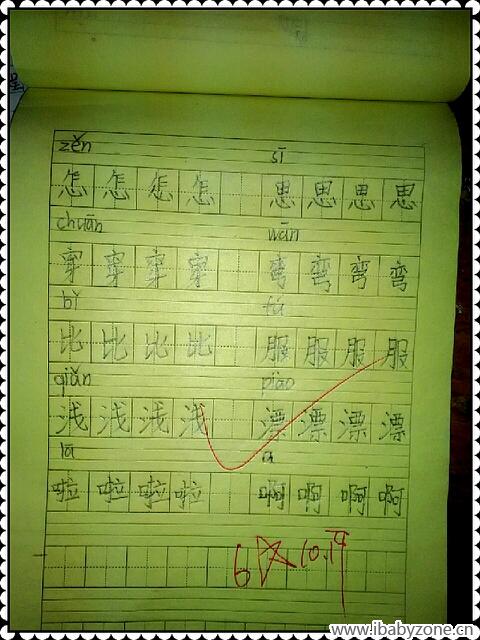 zěn sī
怎 怎 怎 怎 思 思 思 思
chuān wān
穿 穿 穿 穿 弯 弯 弯 弯
bǐ fú
比 比 比 比 服 服 服 服
qiǎn piāo
浅 浅 浅 浅 漂 漂 漂 漂
lā a
啦 啦 啦 啦 啊 啊 啊 啊
www.ibabyzone.cn